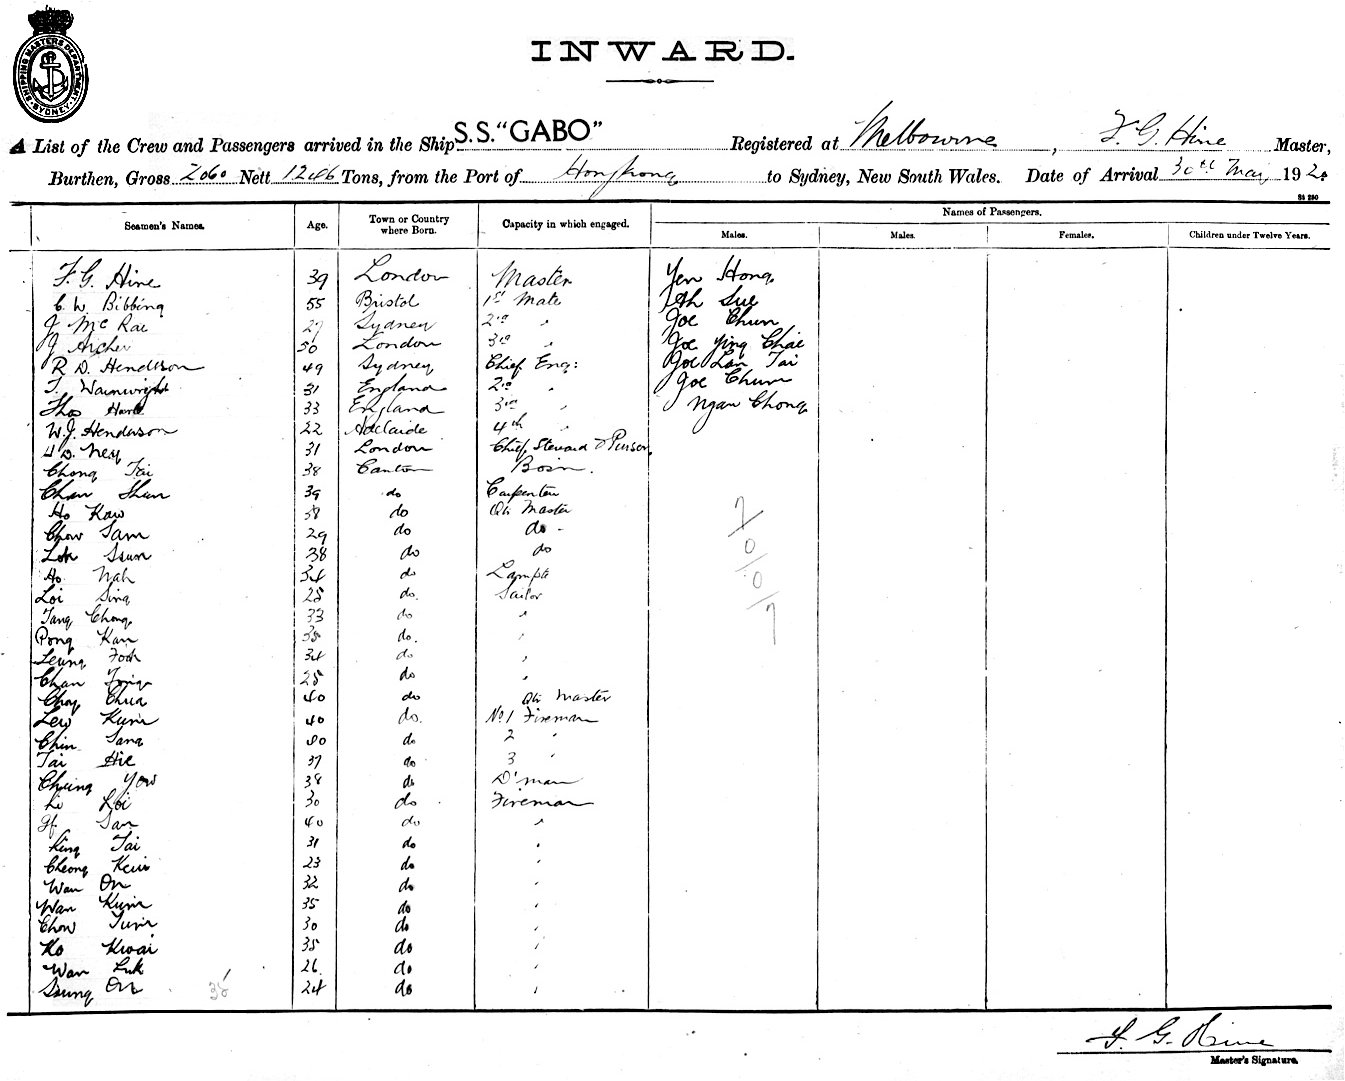 SHIPPING MASTERS DEPARTMENT SYDNEY
INWARD.
A List of the Crew and Passengers arrived in the Ship S.S. "GABO" Registered at Melbourne, F. G. Hine Master,
Burthen, Gross 2060 Nett 1246 Tons, from the Port of Hongkong to Sydney, New South Wales. Date of Arrival 30th May 192
Seamen's Names. Age. Town or Country where Born. Capacity in which engaged. Names of Passengers.
Males. Males. Females. Children under Twelve Years.
F. G. Hine 39 London Master Yen Hong
C. W. Bibbing 55 Bristol 1st Mate Ah Sue
J Mc Rae 27 Sydney 2nd " Joe Chun
J Archer 50 London 3rd " Joe Ying Chae
R D. Henderson 49 Sydney Chief Eng: Joe Lan Tai
T. Wainwright 31 England 2nd " Joe Chun
Thos 33 England 3rd " Ngan Chong
W. J. Henderson 22 Adelaide 4th "
D. Ney 31 London Chief Steward & Purser
Chong Tai 38 Canton Bosn.
Chan Shun 39 do Carpenter
Ho Kaw 58 do Qtr Master
Chow Sam 29 do do
Lok Ssun 38 do do
Ho Nah 34 do Lamps
Loi Sing 25 do. Sailor
Tang Chong 33 do "
Pong Kan 35 do. "
Leung Fook 34 do "
Chan 25 do "
Choy Chua 40 do Qtr Master
Lew Kum 40 do. No. 1 Fireman
Chin Sang 40 do 2 "
Tai Hie 37 do 3 "
Cheung Yow 38 do D'man
Li Loi 30 do Fireman
San 40 do "
King Tai 31 do "
Cheong Kew 23 do "
Wan On 32 do "
Wan Kum 35 do "
Chow Tum 30 do "
Ko Kwai 35 do "
Wan Luk 26 do "
Ssung On 24 do "
7/0/0/7
F. G. Hine
Master's Signature.